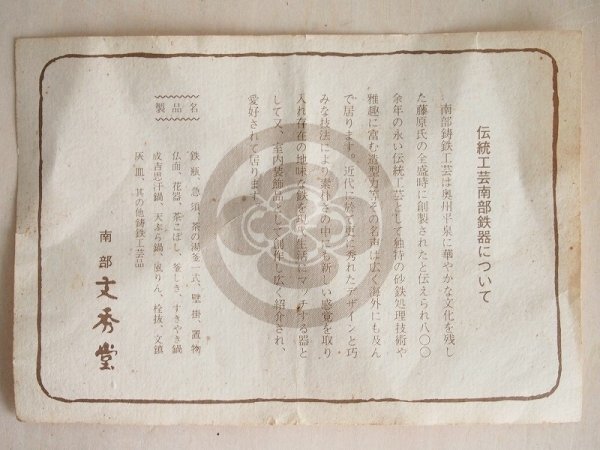 伝統工芸南部鉄器について
南部鋳鉄工芸は奥州平泉に華やかな文化を残し
た藤原氏の全盛時に創製されたと伝えられ八〇〇
余年の永い伝統工芸として独特の砂鉄処理技術や
雅趣に富む造型力等その名声は広く海外にも及ん
で居ります。近代に於て更に秀れたデザインと巧
みな技法により素朴さの中にも新しい感覚を取り
入れ存在の地味な鉄を現代生活にマッチする器と
して又、室内装飾品として創作し広く紹介され、
愛好されて居ります。
製品名
鉄瓶、急須、茶の湯釜一式、壁掛、置物
仏面、花器、茶こぼし、釜しき、すきやき鍋
成吉思汗鍋、天ぷら鍋、風りん、栓抜、文鎮
灰皿、其の他鋳鉄工芸品
南部 文秀堂